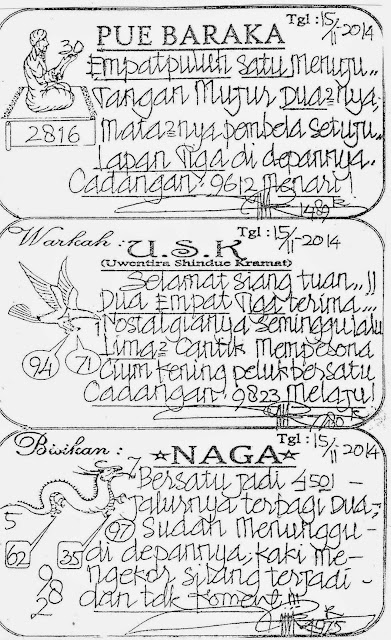 PUE BARAKA
Tgl : 15/11-2014
30
2816
Empatpuluh satu menuju..
Tangan Mujur Dua2nya
Mata2nya pembela setuju..
Lapan Tiga di depannya.
Cadangan : 9612 Menari !
Warkah :
U.S.K
(Uwentira Shindue Kramat)
Tgl : 15/11-2014
Selamat siang tuan,,!!
Dua Empat Tiga terima,,,
Nostalgianya seminggu lalu
94 71
Lima2 Cantik Mempesona
Cium kening peluk bersatu
Cadangan : 9823 Melaju !
Bisikan :
NAGA
Tgl : 15/11-2014
7
Bersatu jadi 4501 -
Jalurnya terbagi Dua,
5
97
Sudah Menunggu -
62 35
di depannya, kaki me-
ngekor silang terjadi -
dan tdk Koment !!!
4975